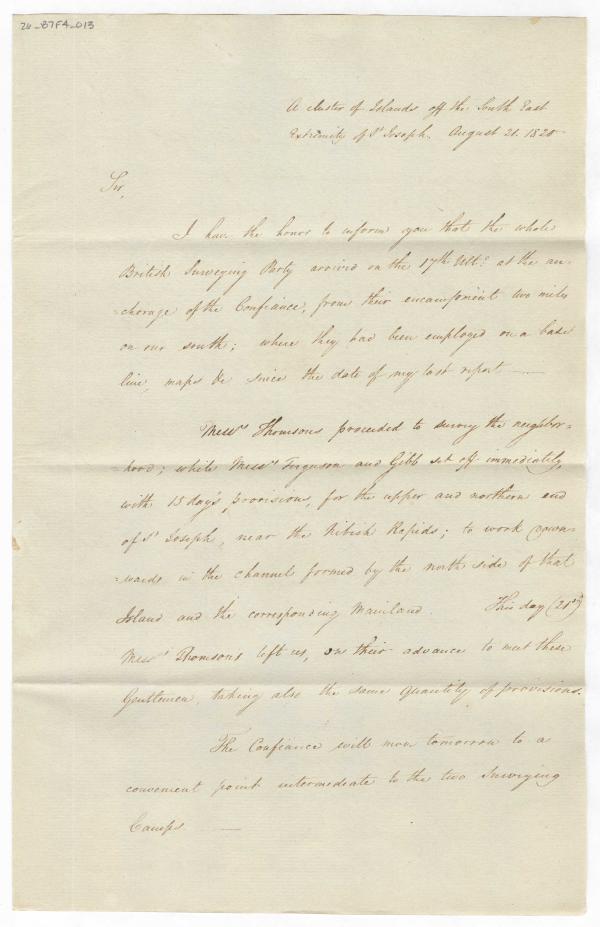 26_B7F4_013
A cluster of Islands off the South East
Extremity of St Joseph. August 21. 1820
Sir,
I have the honor to inform you that the whole
British Surveying Party arrived on the 17th Ulto at the an-
=chorage of the Confiance, from their encampment two miles
on our south; where they had been employed on a base
line, maps &c since the date of my last report —
Messrs Thomsons proceeded to survey the neighbor-
=hood; while Messrs Ferguson and Gibb set off immediately,
with 15 day's provisions, for the upper and northern end
of St Joseph, near the Nibish Rapids; to work down-
=wards in the channel formed by the north side of that
Island and the corresponding Mainland. This day (21st)
Messrs Thomsons left us, on their advance to meet these
Gentlemen, taking also the same quantity of provisions.
The Confiance will move tomorrow to a
convenient point intermediate to the two Surveying
Camps —